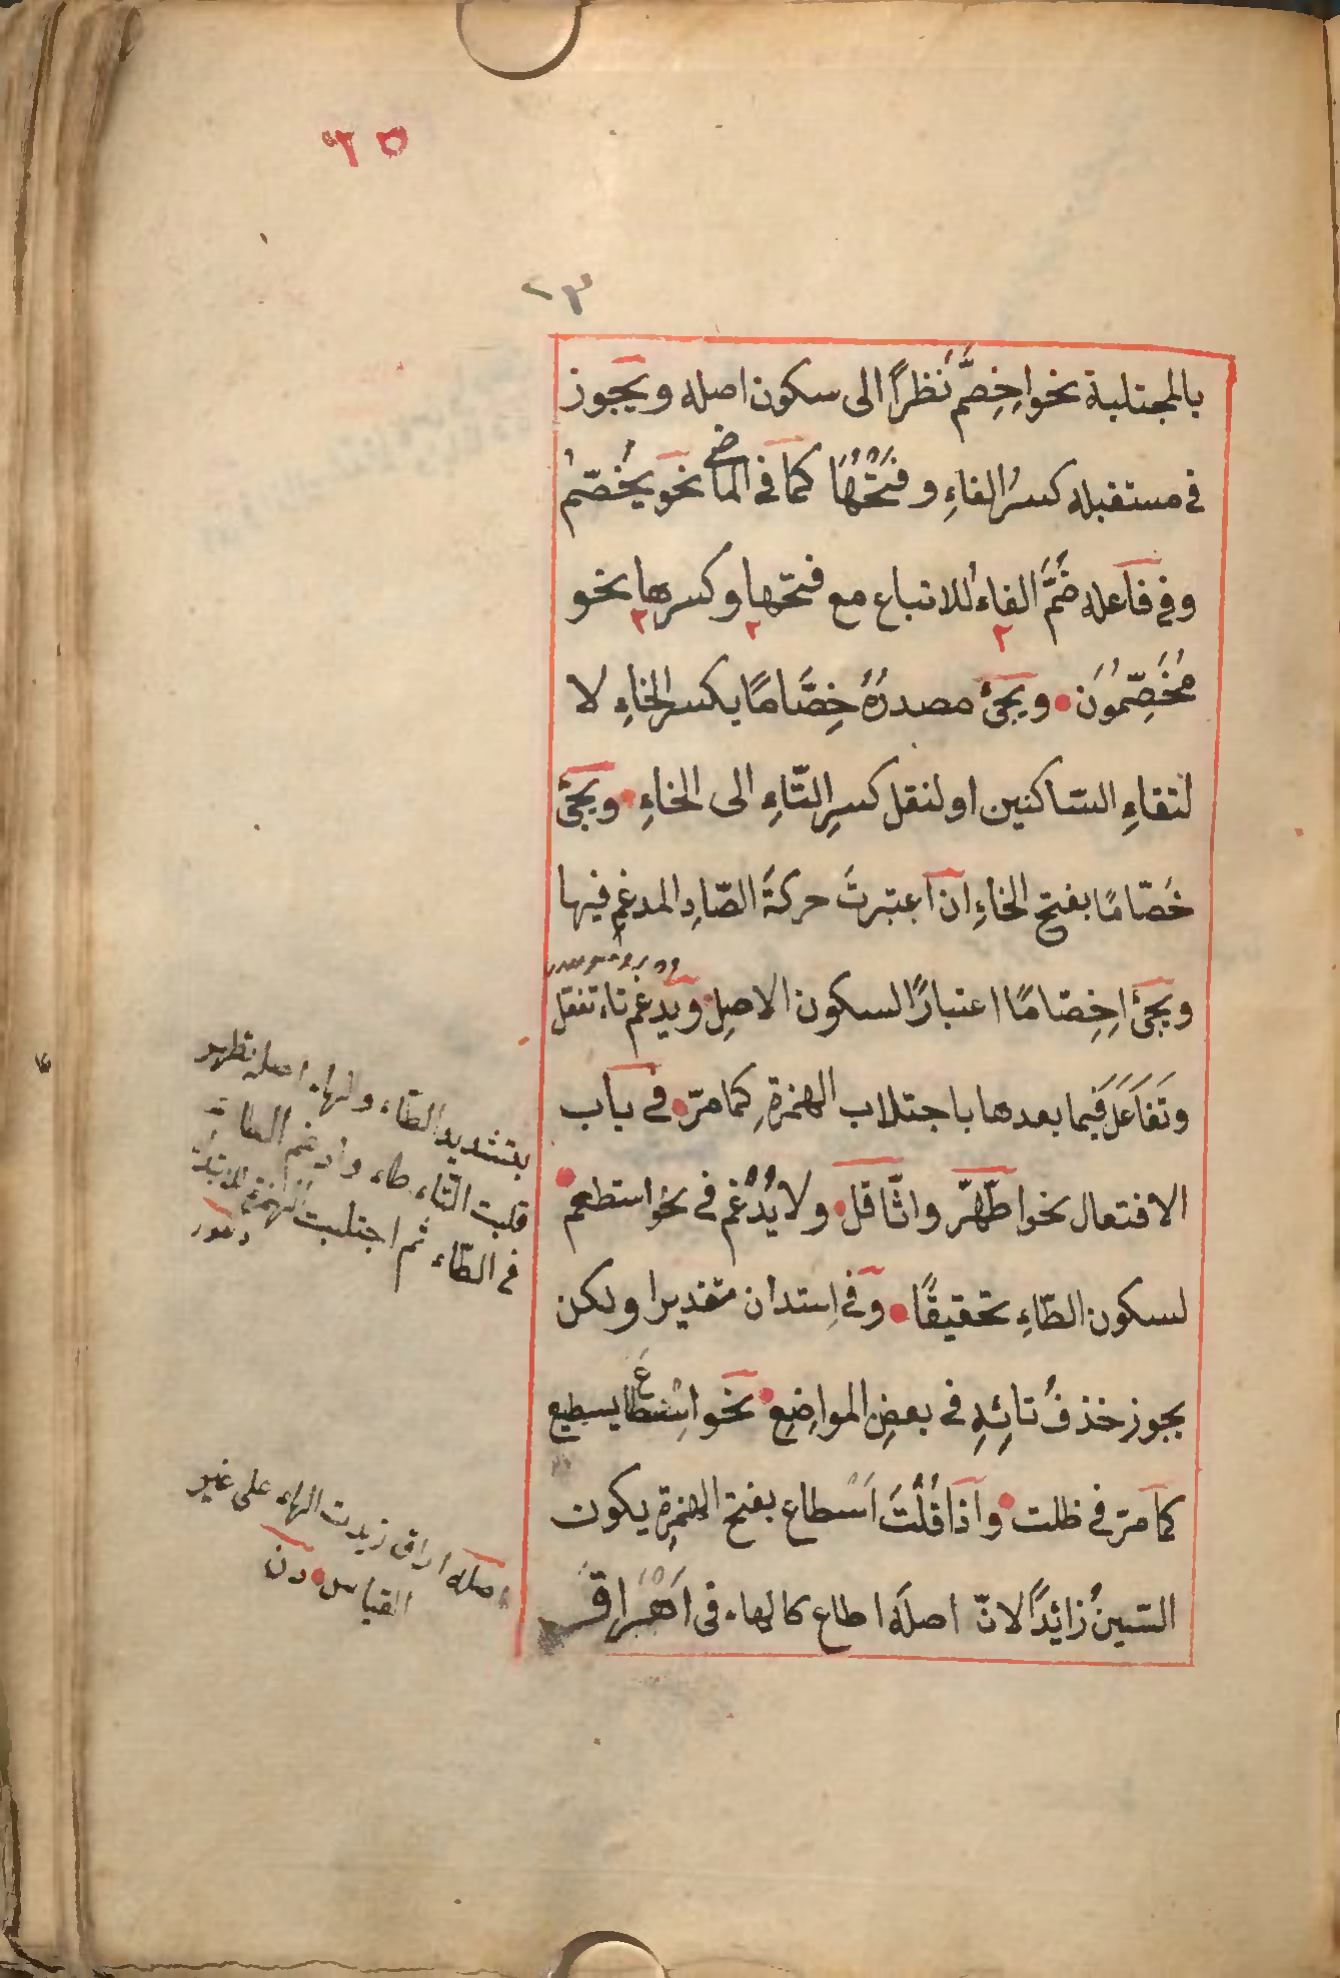 ٢٥
٢٣
بالمجتلبة نحو اِخِصَّمَ نَظَراً الى سكون اصله ويجوز
فى مستقبله كسرُ الفاءِ وفَتْحُهَا كما فى الماضى نحو يخُصّمُ
وفى فاعله ضَمَّ الفاءُ للاتباع مع فتحها وكسرها نحو
مُخَصِّمُونَ ويجئُ مصدرُهُ خِصَّامًا بكسر الخاءِ لا
لتقاءِ السّاكنين او لنقل كسرِ التّاءِ الى الخاءِ ويجئُ
خَصّامًا بفتح الخاءِ ان اعتبرتَ حركةَ الصّادِ المدغمِ فيها
ويجئُ اِخِصّامًا اعتبارًا لسكون الاصلِ ويدغم تاء تفعّل
وتَفَاعَلَ فَيما بعدها باجتلاب الهمزةِ كما مرّ فى باب
الافتعال نحو اطّهّر واثّاقل ولا يُدْغم فى نحو استطعم
لسكون الطّاءِ تحقيقًا وفى اِستدان تقديرا ولكن
يجوز حذفُ تائِهِ فى بعضِ المواضِعِ نحو اِسْطاعَ يسطيع
كما مرّ فى ظلت واذا قُلْتَ اَسْطاع بفتح الهمزةِ يكون
السّينُ زائِداً لانّ اصلَه اطاع كالهاء فى اَهْرَاقَ
بتشديد الطّاء والهاء اصله تطهر
قلبت التّاء طاء وادغم الطاء
فى الطّاء ثم اجتلبت الهمزة للابتداء
اصله اراق زيدت الهاء على غير
القياس